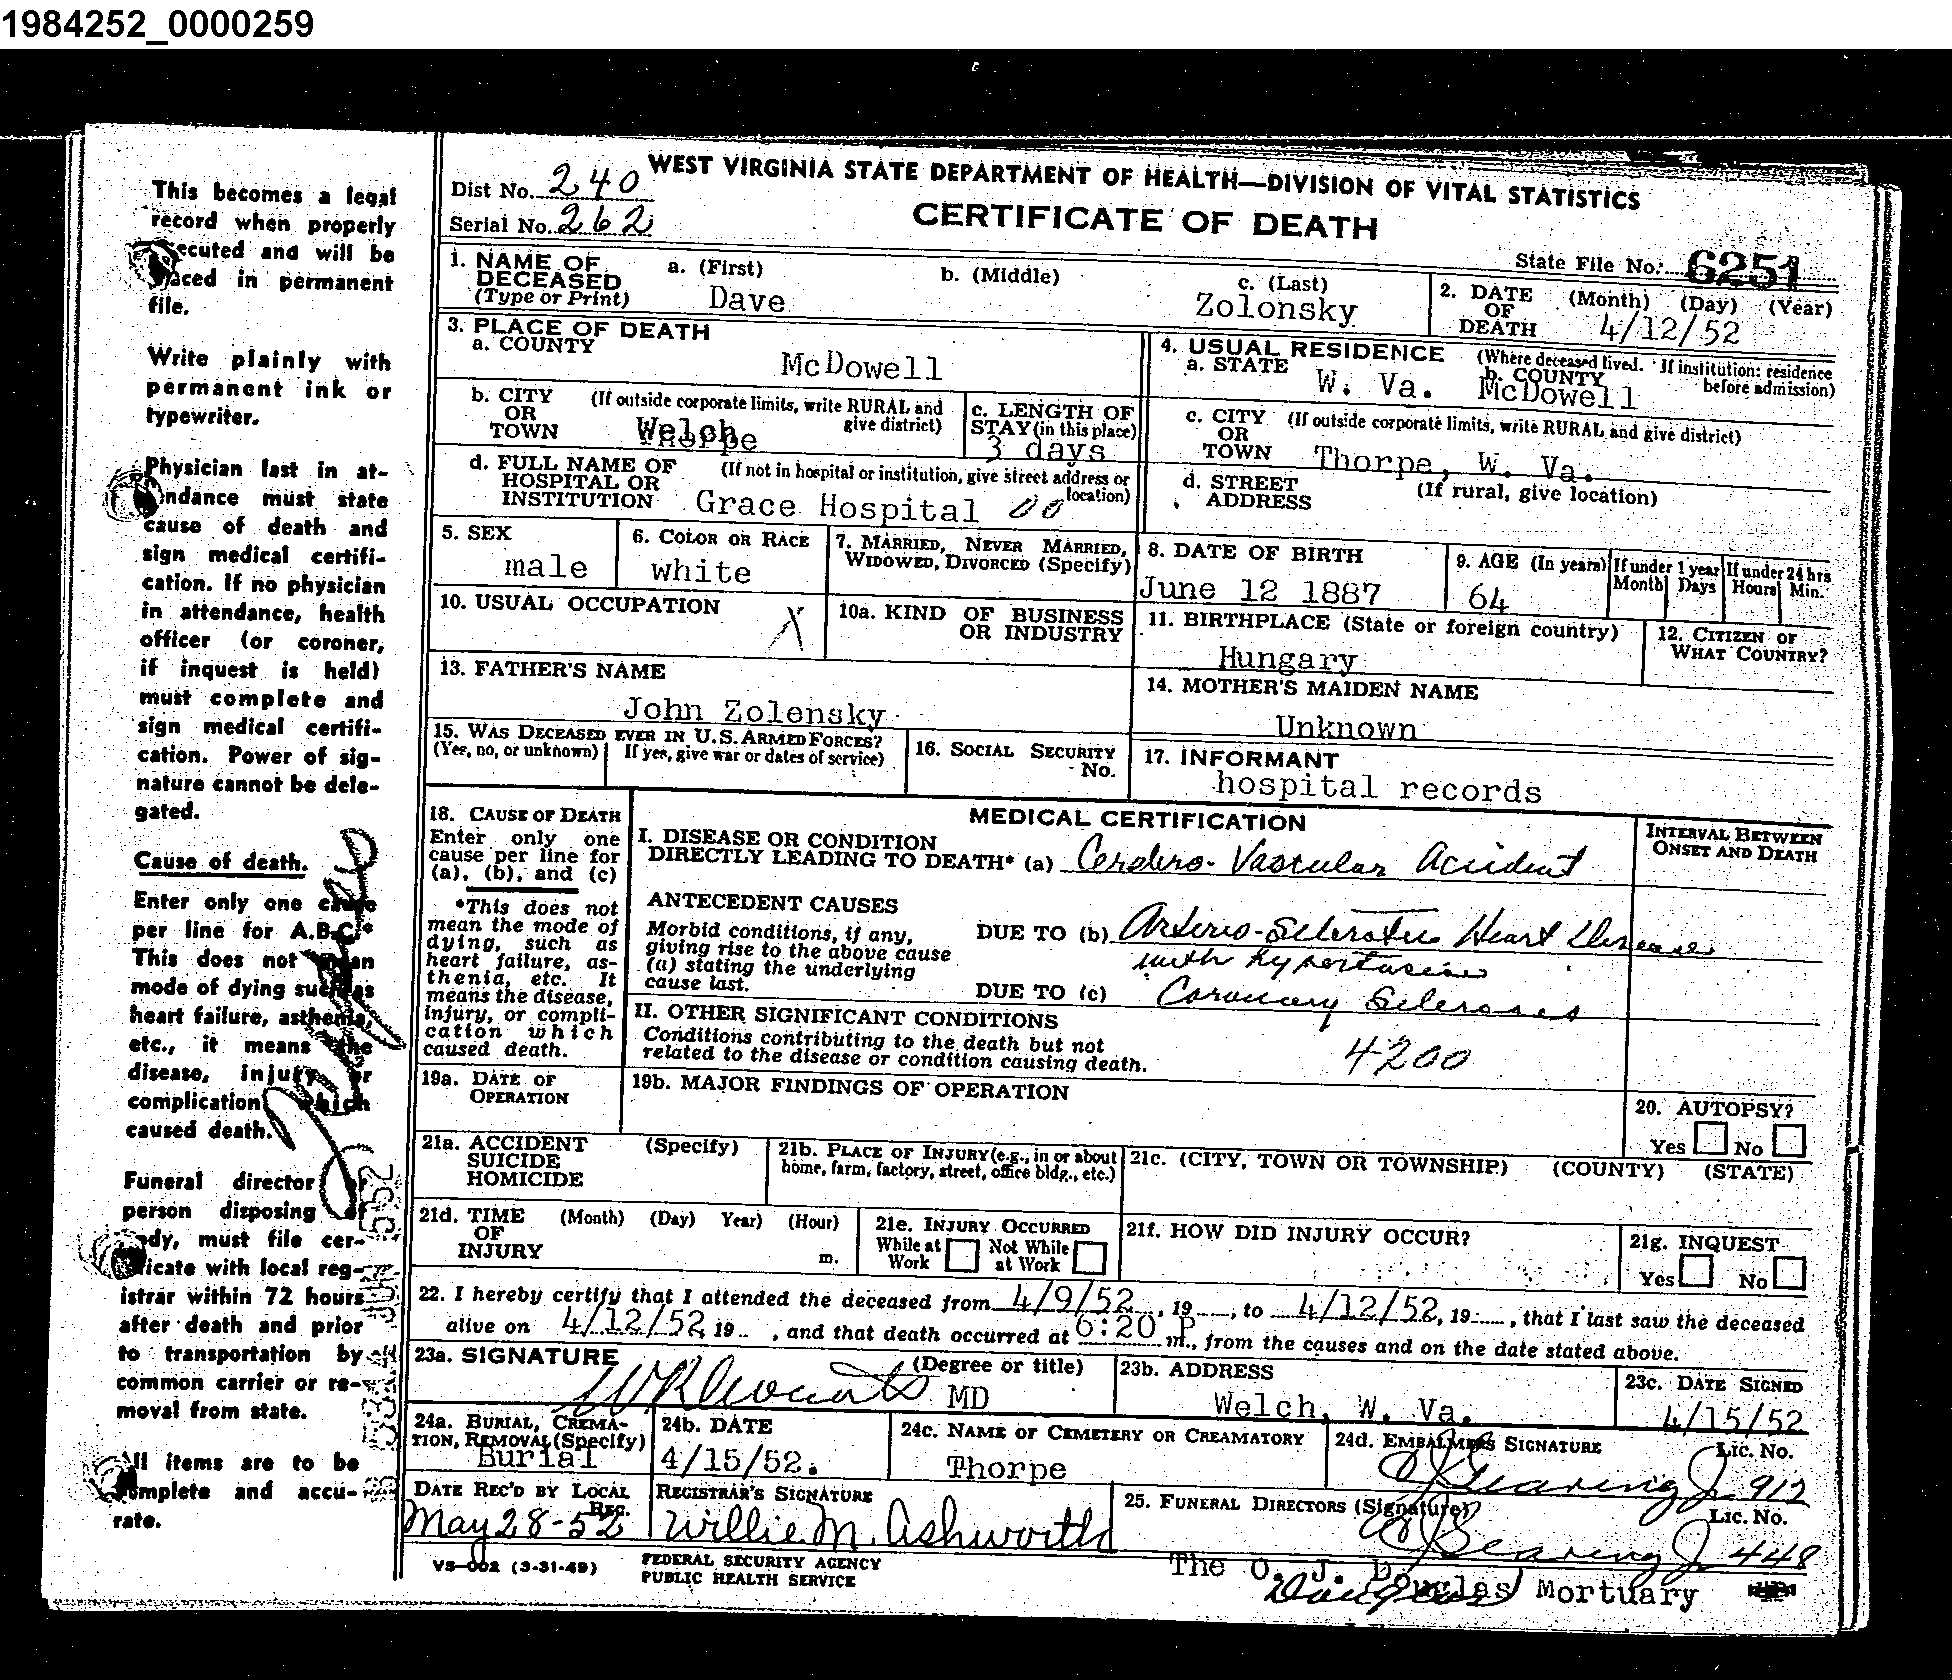 1984252_0000259
This becomes a legal
record when properly
ecuted and will be
aced in permanent
file.
Write plainly with
permanent ink or
typewriter.
Physician last in at-
ndance must state
cause of death and
sign medical certifi-
cation. If no physician
in attendance, health
officer (or coroner,
if inquest is held)
must complete and
sign medical certifi-
cation. Power of sig-
nature cannot be dele-
gated.
Cause of death.
Enter only one cause
per line for A.B.C.*
This does not mean
mode of dying such as
heart failure, asthenia,
etc., it means the
disease, injury or
complication which
caused death.
Funeral director or
person disposing of
ody, must file cer-
ificate with local reg-
istrar within 72 hours
after death and prior
to transportation by
common carrier or re-
moval from state.
All items are to be
omplete and accu-
rate.
Dist No. 240
WEST VIRGINIA STATE DEPARTMENT OF HEALTH—DIVISION OF VITAL STATISTICS
Serial No. 262
CERTIFICATE OF DEATH
State File No. 6251
1. NAME OF DECEASED (Type or Print)
a. (First) Dave
b. (Middle)
c. (Last) Zolonsky
2. DATE OF DEATH (Month) (Day) (Year)
4/12/52
3. PLACE OF DEATH
a. COUNTY McDowell
4. USUAL RESIDENCE (Where deceased lived. If institution: residence before admission)
a. STATE W. Va. b. COUNTY McDowell
b. CITY OR TOWN (If outside corporate limits, write RURAL and give district)
Welch
Thorpe
c. LENGTH OF STAY (in this place)
3 days
c. CITY OR TOWN (If outside corporate limits, write RURAL and give district)
Thorpe, W. Va.
d. FULL NAME OF HOSPITAL OR INSTITUTION (If not in hospital or institution, give street address or location)
Grace Hospital 00
d. STREET ADDRESS (If rural, give location)
5. SEX male
6. COLOR OR RACE white
7. MARRIED, NEVER MARRIED, WIDOWED, DIVORCED (Specify)
8. DATE OF BIRTH
June 12 1887
9. AGE (In years) 64
If under 1 year Month Days
If under 24 hrs Hours Min.
10. USUAL OCCUPATION X
10a. KIND OF BUSINESS OR INDUSTRY
11. BIRTHPLACE (State or foreign country)
Hungary
12. CITIZEN OF WHAT COUNTRY?
13. FATHER'S NAME
John Zolensky
14. MOTHER'S MAIDEN NAME
Unknown
15. WAS DECEASED EVER IN U.S. ARMED FORCES?
(Yes, no, or unknown) If yes, give war or dates of service)
16. SOCIAL SECURITY No.
17. INFORMANT
hospital records
18. CAUSE OF DEATH
Enter only one
cause per line for
(a), (b), and (c)
*This does not
mean the mode of
dying, such as
heart failure, as-
thenia, etc. It
means the disease,
injury, or compli-
cation which
caused death.
MEDICAL CERTIFICATION
INTERVAL BETWEEN ONSET AND DEATH
I. DISEASE OR CONDITION
DIRECTLY LEADING TO DEATH* (a) Cerebro-Vascular Accident
ANTECEDENT CAUSES
Morbid conditions, if any,
giving rise to the above cause
(a) stating the underlying
cause last.
DUE TO (b) Arterio-Sclerotic Heart Disease
with hypertension
DUE TO (c) Coronary Sclerosis
II. OTHER SIGNIFICANT CONDITIONS
Conditions contributing to the death but not
related to the disease or condition causing death.
4200
19a. DATE OF OPERATION
19b. MAJOR FINDINGS OF OPERATION
20. AUTOPSY?
Yes No
21a. ACCIDENT SUICIDE HOMICIDE (Specify)
21b. PLACE OF INJURY (e.g., in or about home, farm, factory, street, office bldg., etc.)
21c. (CITY, TOWN OR TOWNSHIP) (COUNTY) (STATE)
21d. TIME OF INJURY (Month) (Day) Year) (Hour) m.
21e. INJURY OCCURRED
While at Work Not While at Work
21f. HOW DID INJURY OCCUR?
21g. INQUEST
Yes No
22. I hereby certify that I attended the deceased from 4/9/52, 19 , to 4/12/52, 19 , that I last saw the deceased
alive on 4/12/52, 19 , and that death occurred at 6:20 P m., from the causes and on the date stated above.
23a. SIGNATURE (Degree or title)
MD
23b. ADDRESS
Welch, W. Va.
23c. DATE SIGNED
4/15/52
24a. BURIAL, CREMATION, REMOVAL (Specify)
Burial
24b. DATE
4/15/52.
24c. NAME OF CEMETERY OR CREAMATORY
Thorpe
24d. EMBALMERS SIGNATURE Lic. No.
912
DATE REC'D BY LOCAL REG.
May 28-52
REGISTRAR'S SIGNATURE
Willie M. Ashworth
25. FUNERAL DIRECTORS (Signature) Lic. No.
448
The O. J. Douglas Mortuary
Douglas
VS-002 (3-31-49)
FEDERAL SECURITY AGENCY
PUBLIC HEALTH SERVICE